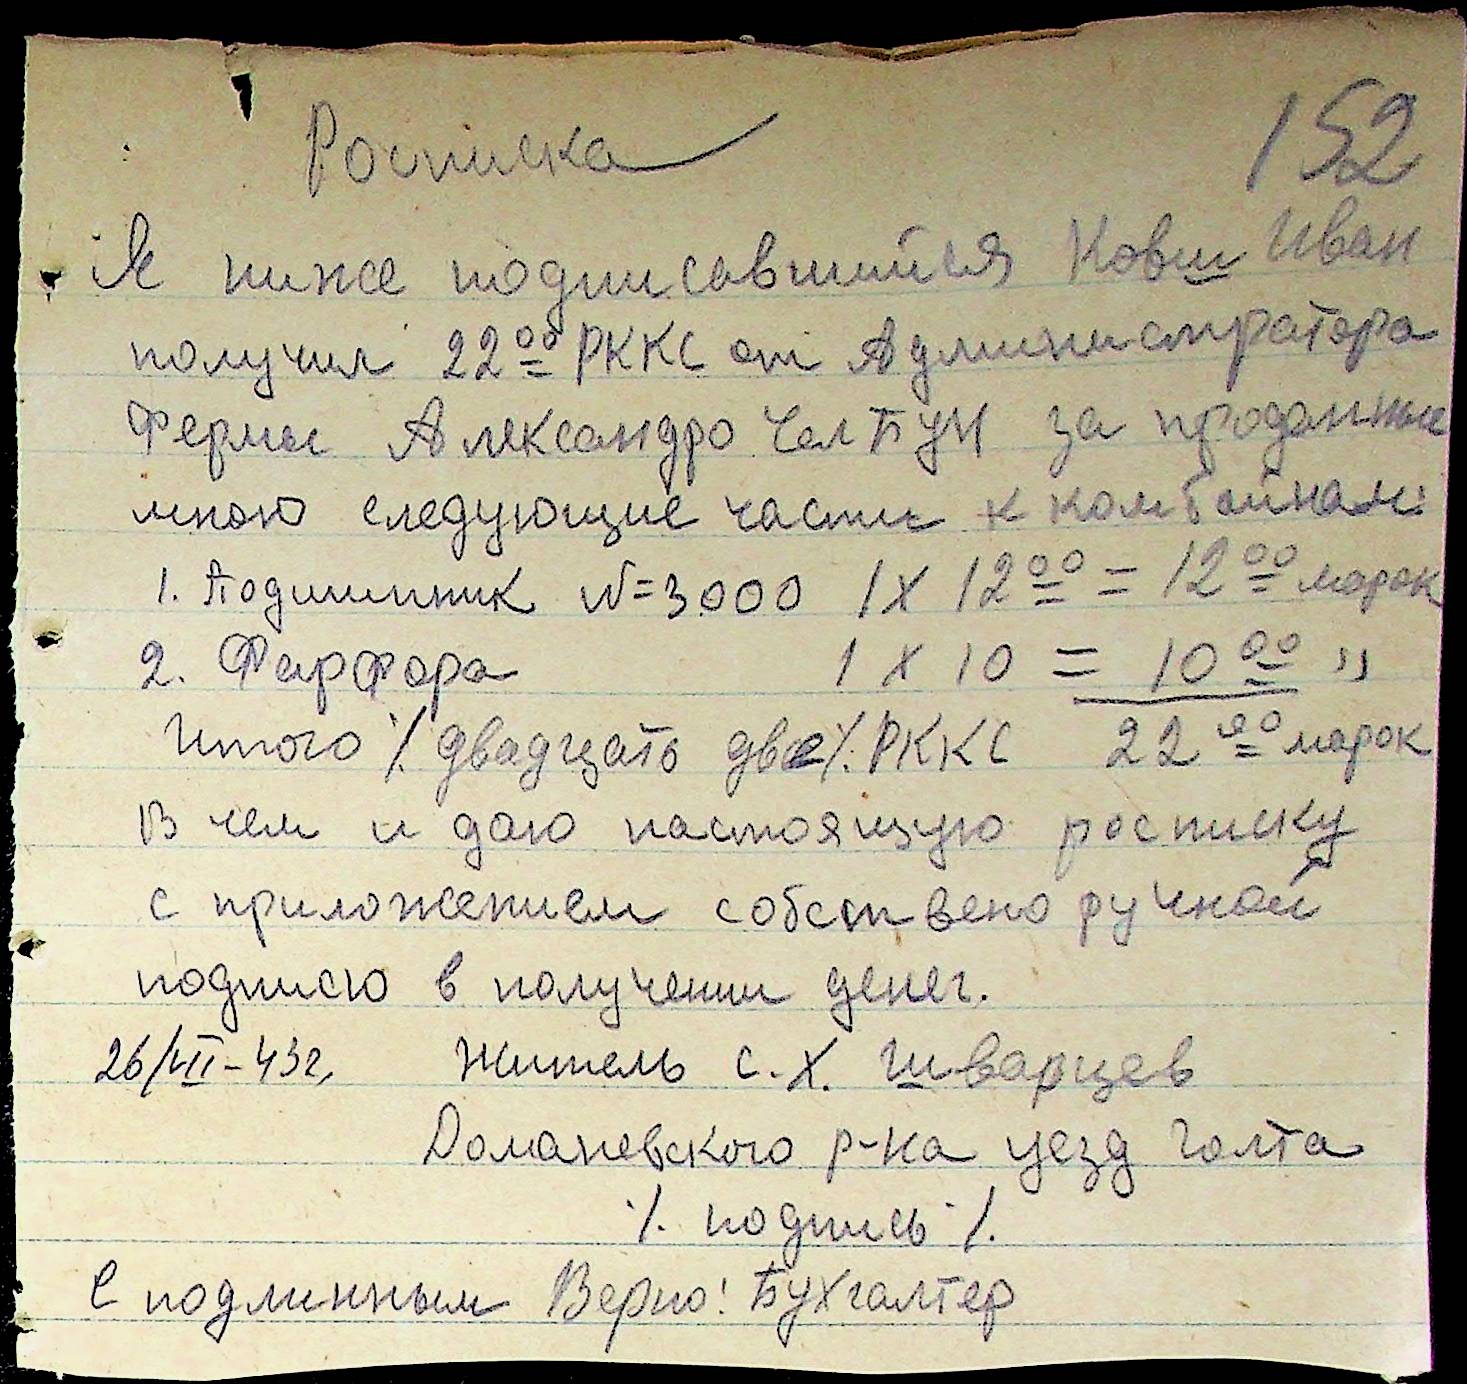 Росписка
152
Я ниже подписавшийся Ковш Иван
получил 22 00 РККС от Администратора
Фермы Александро ЧелБУН за проданные
мною следующие части к комбайнам:
1. Подшипник N=3000 1 х 12 00 = 12 00 марок
2. Фарфора 1 х 10 = 10 00 "
Итого ./. двадцать две ./. РККС 22 00 марок
В чем и даю настоящую росписку
с приложением собствено ручной
подписю в получении денег.
26/VII-43г. Житель с.х. Шварцев
Доманевского р-на уезд Голта
./. подпись ./.
С подлинным Верно! Бухгалтер